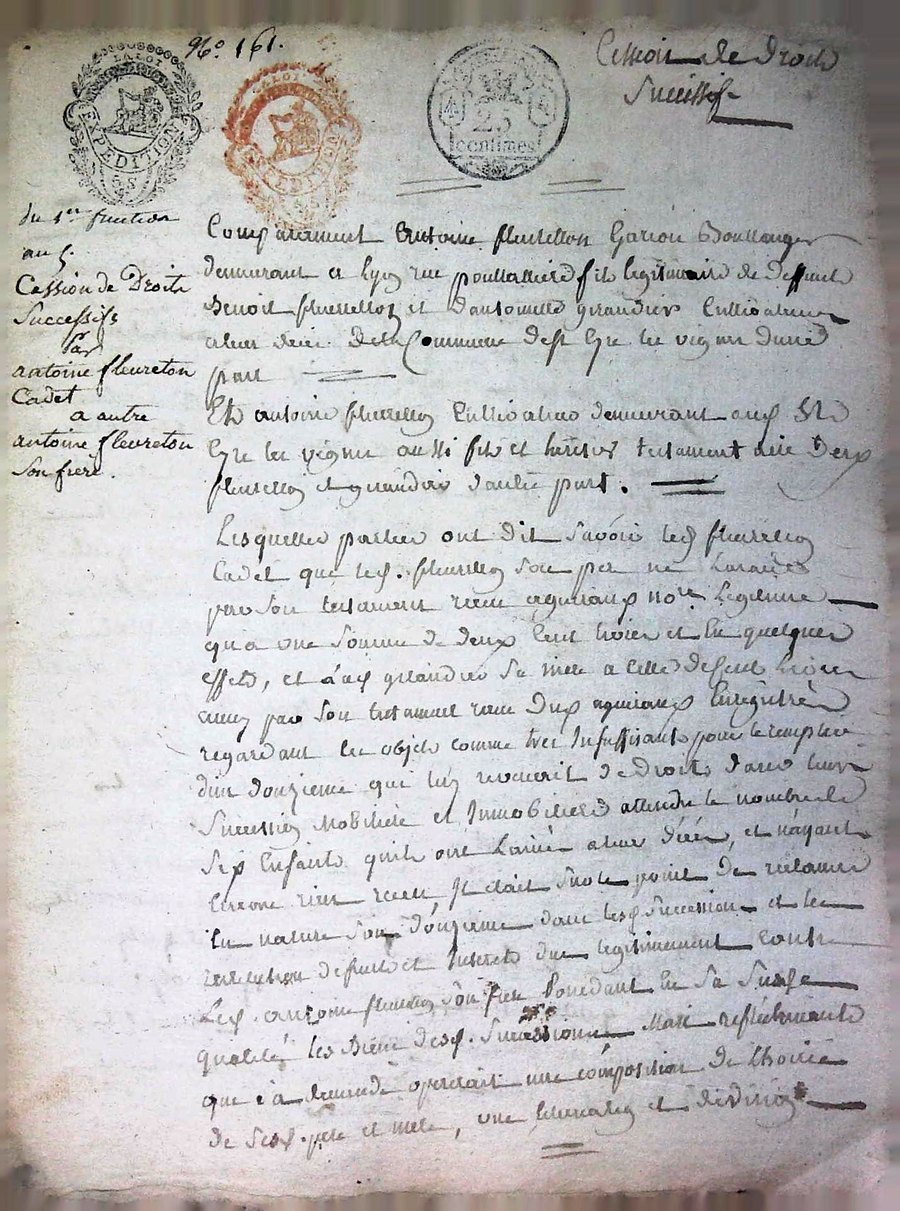 No. 161.
Cession de Droits
Successifs
LA LOI
EXPEDITION
LA LOI
EXPEDITION
25
centimes
du 1er
Cession de Droits
Successifs
Par
antoine fleureton
Cadet
a autre
antoine fleureton
son frere.
Comparaiment Antoine fleurellon Garçon Boullanger
demeurant a Lyon rue fils legitimaire de deffunt
Benoit fleurellon et d'antoinette girardier Cultivateurs
a leur décés de la Commune de st Cyre les vignes d'une
part
Et antoine fleurellon Cultivateur demeurant aud. St
Cyre les vignes aussi fils et héritier testamentaire desd
fleurellon et girardier d'autre part.
Lesquelles parties ont dit savoir led fleurellon
Cadet que led. fleurellon son pere ne
par son testament recu no.re
qu'a une somme de deux Cent livres et En quelques
effets, et lad girardier sa mere a Celle de Cent livres
aussi par son testament recu dud Enregistré
regardant les objets comme tres Insuffisants pour le remplir
d'un douzieme qui luy revenoit de droits dans leurs
Succession Mobiliere et Immobiliere attendu le nombre de
Six Enfants qu'ils ont Laissé a leur décés, et n'ayant
Encore rien recu, Il etait sur le point de reclamer
En nature son douzieme dans lesd Succession et les
restitution de fruits et Interets dus legitimement contre
Led. antoine fleurellon son frere Possedant En sa Susd
qualité les Biens desd. Successions Mais reflechissant
que sa demande operait une composition de l'hoirie
de sesd. pere et mere, une et division